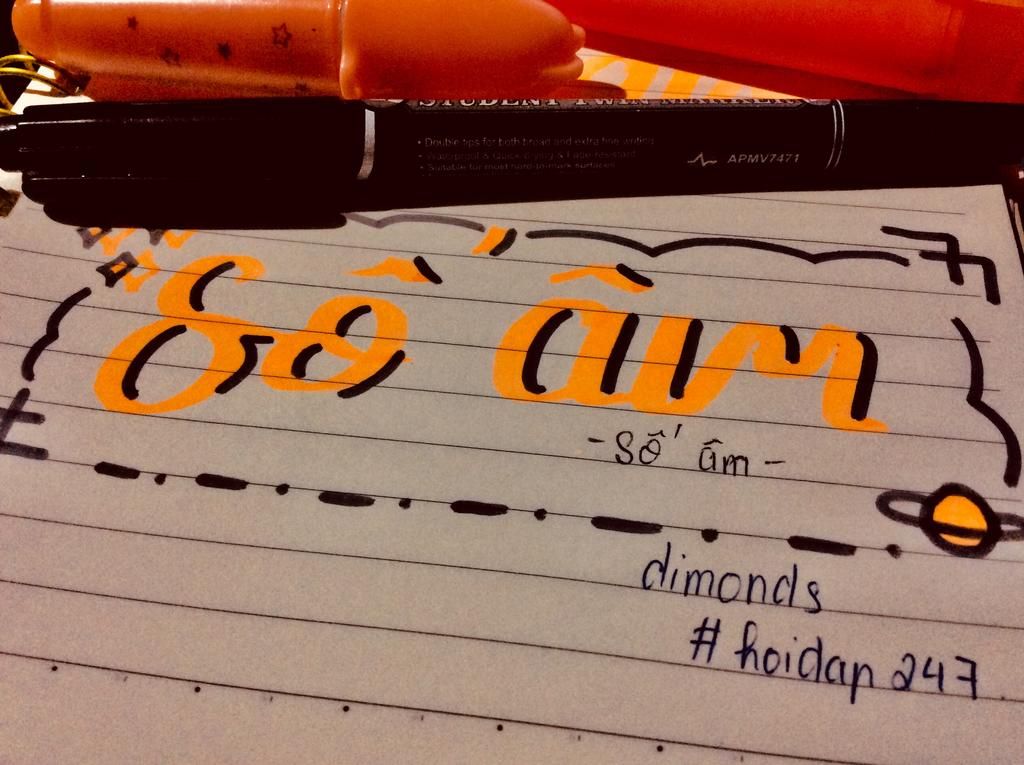 STUDENT TWIN MARKER
• Double tips for both broad and extra fine writing
• Waterproof & Quick drying & Fade resistant
• Suitable for most hard-to-mark surfaces
APMV7471
Số âm
- Số âm -
dimonds
# hoidap 247